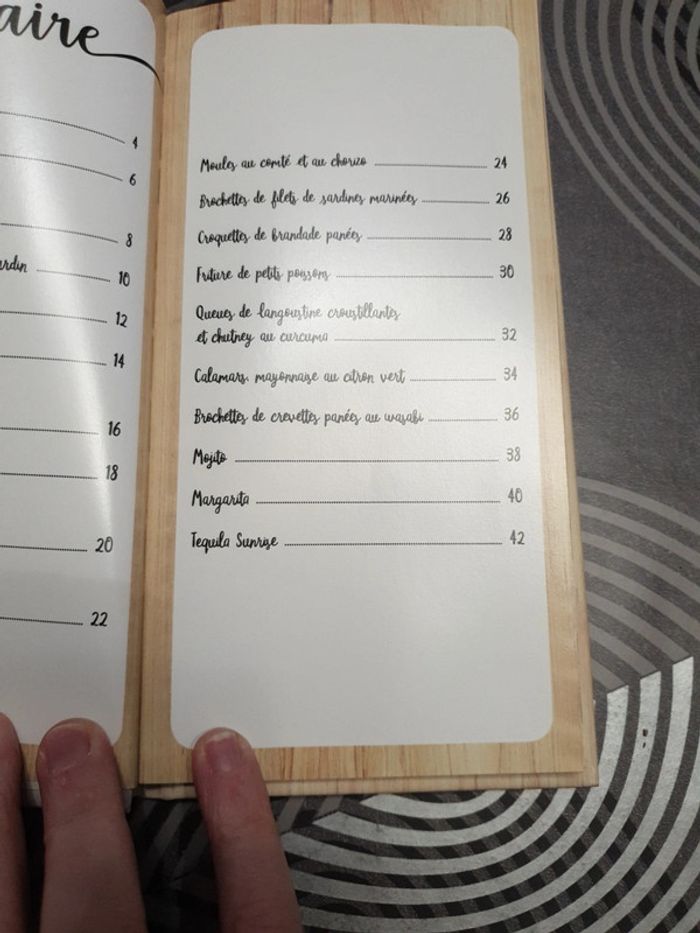 aire
4
6
8
rdin 10
12
14
16
18
20
22
Moules au comté et au chorizo 24
Brochettes de filets de sardines marinées 26
Croquettes de brandade panées 28
Friture de petits poissons 30
Queues de langoustine croustillantes
et chutney au curcuma 32
Calamars, mayonnaise au citron vert 34
Brochettes de crevettes panées au wasabi 36
Mojito 38
Margarita 40
Tequila Sunrise 42